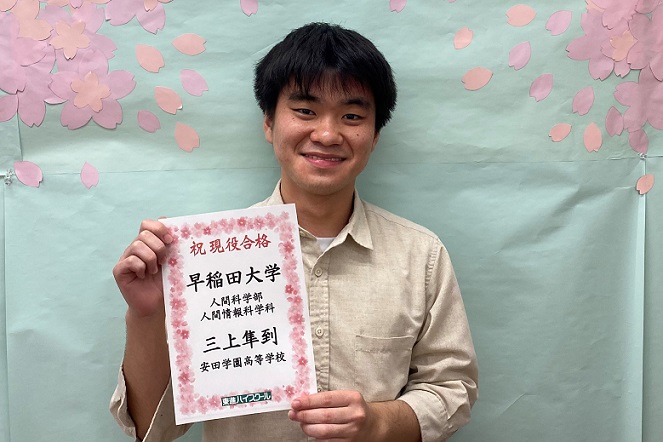 祝 現役合格
早稲田大学
人間科学部
人間情報科学科
三上隼到
安田学園高等学校
東進ハイスクール